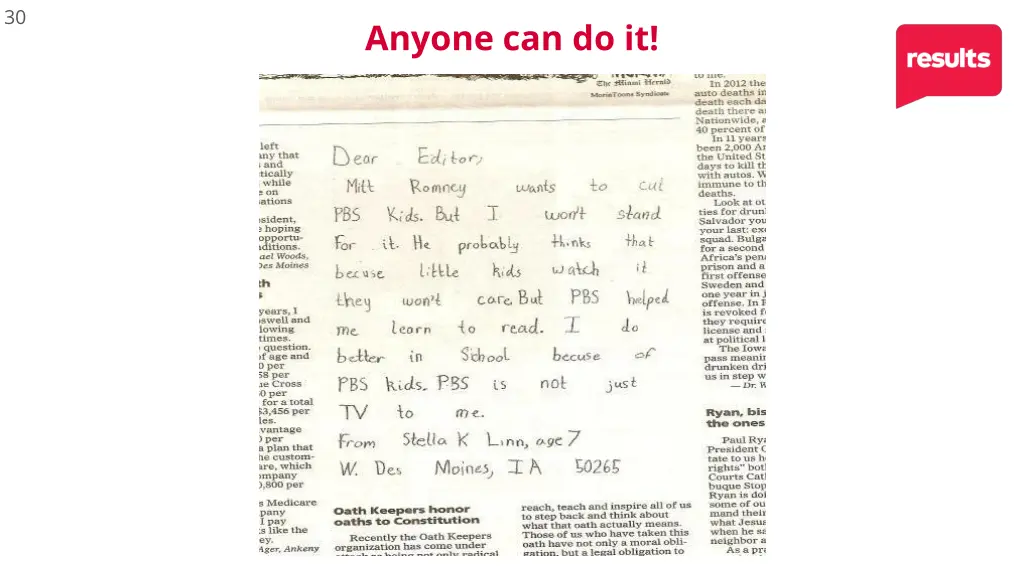 30
Anyone can do it!
results
The Miami Herald
MorinToons Syndicate
left
any that
and
tically
while
e on
sations
sident,
hoping
opportu-
nditions.
ael Woods,
Des Moines
th
s
years, I
swell and
lowing
times.
question.
of age and
0 per
58 per
ue Cross
50 per
for a total
$3,456 per
les.
vantage
) per
a plan that
he custom-
are, which
ompany
0,800 per
s Medicare
pany
I pay
s like the
ey.
Ager, Ankeny
Dear Editor,
Mitt Romney wants to cut
PBS Kids. But I won't stand
For it. He probably thinks that
becuse little kids watch it
they won't care. But PBS helped
me learn to read. I do
better in School becuse of
PBS kids. PBS is not just
TV to me.
From Stella K Linn, age 7
W. Des Moines, IA 50265
Oath Keepers honor
oaths to Constitution
Recently the Oath Keepers
organization has come under
reach, teach and inspire all of us
to step back and think about
what that oath actually means.
Those of us who have taken this
oath have not only a moral obli-
gation, but a legal obligation to
to me.
In 2012 the
auto deaths in
death each da
death there a
Nationwide, a
40 percent of
In 11 years
been 2,000 A
the United St
days to kill th
with autos. W
immune to th
deaths.
Look at ot
ties for drun
Salvador you
your last: exe
squad. Bulga
for a second
Africa's pena
prison and a
first offense
Sweden and
one year in j
offense. In F
is revoked f
they require
license and
at political l
The Iowa
pass meanin
drunken dri
us in step w
— Dr. W
Ryan, bis
the ones
Paul Rya
President O
tate to us h
rights" both
Courts Cath
buque Stop
Ryan is doi
some of ou
mand their
what Jesus
when he sa
neighbor a
As a pra